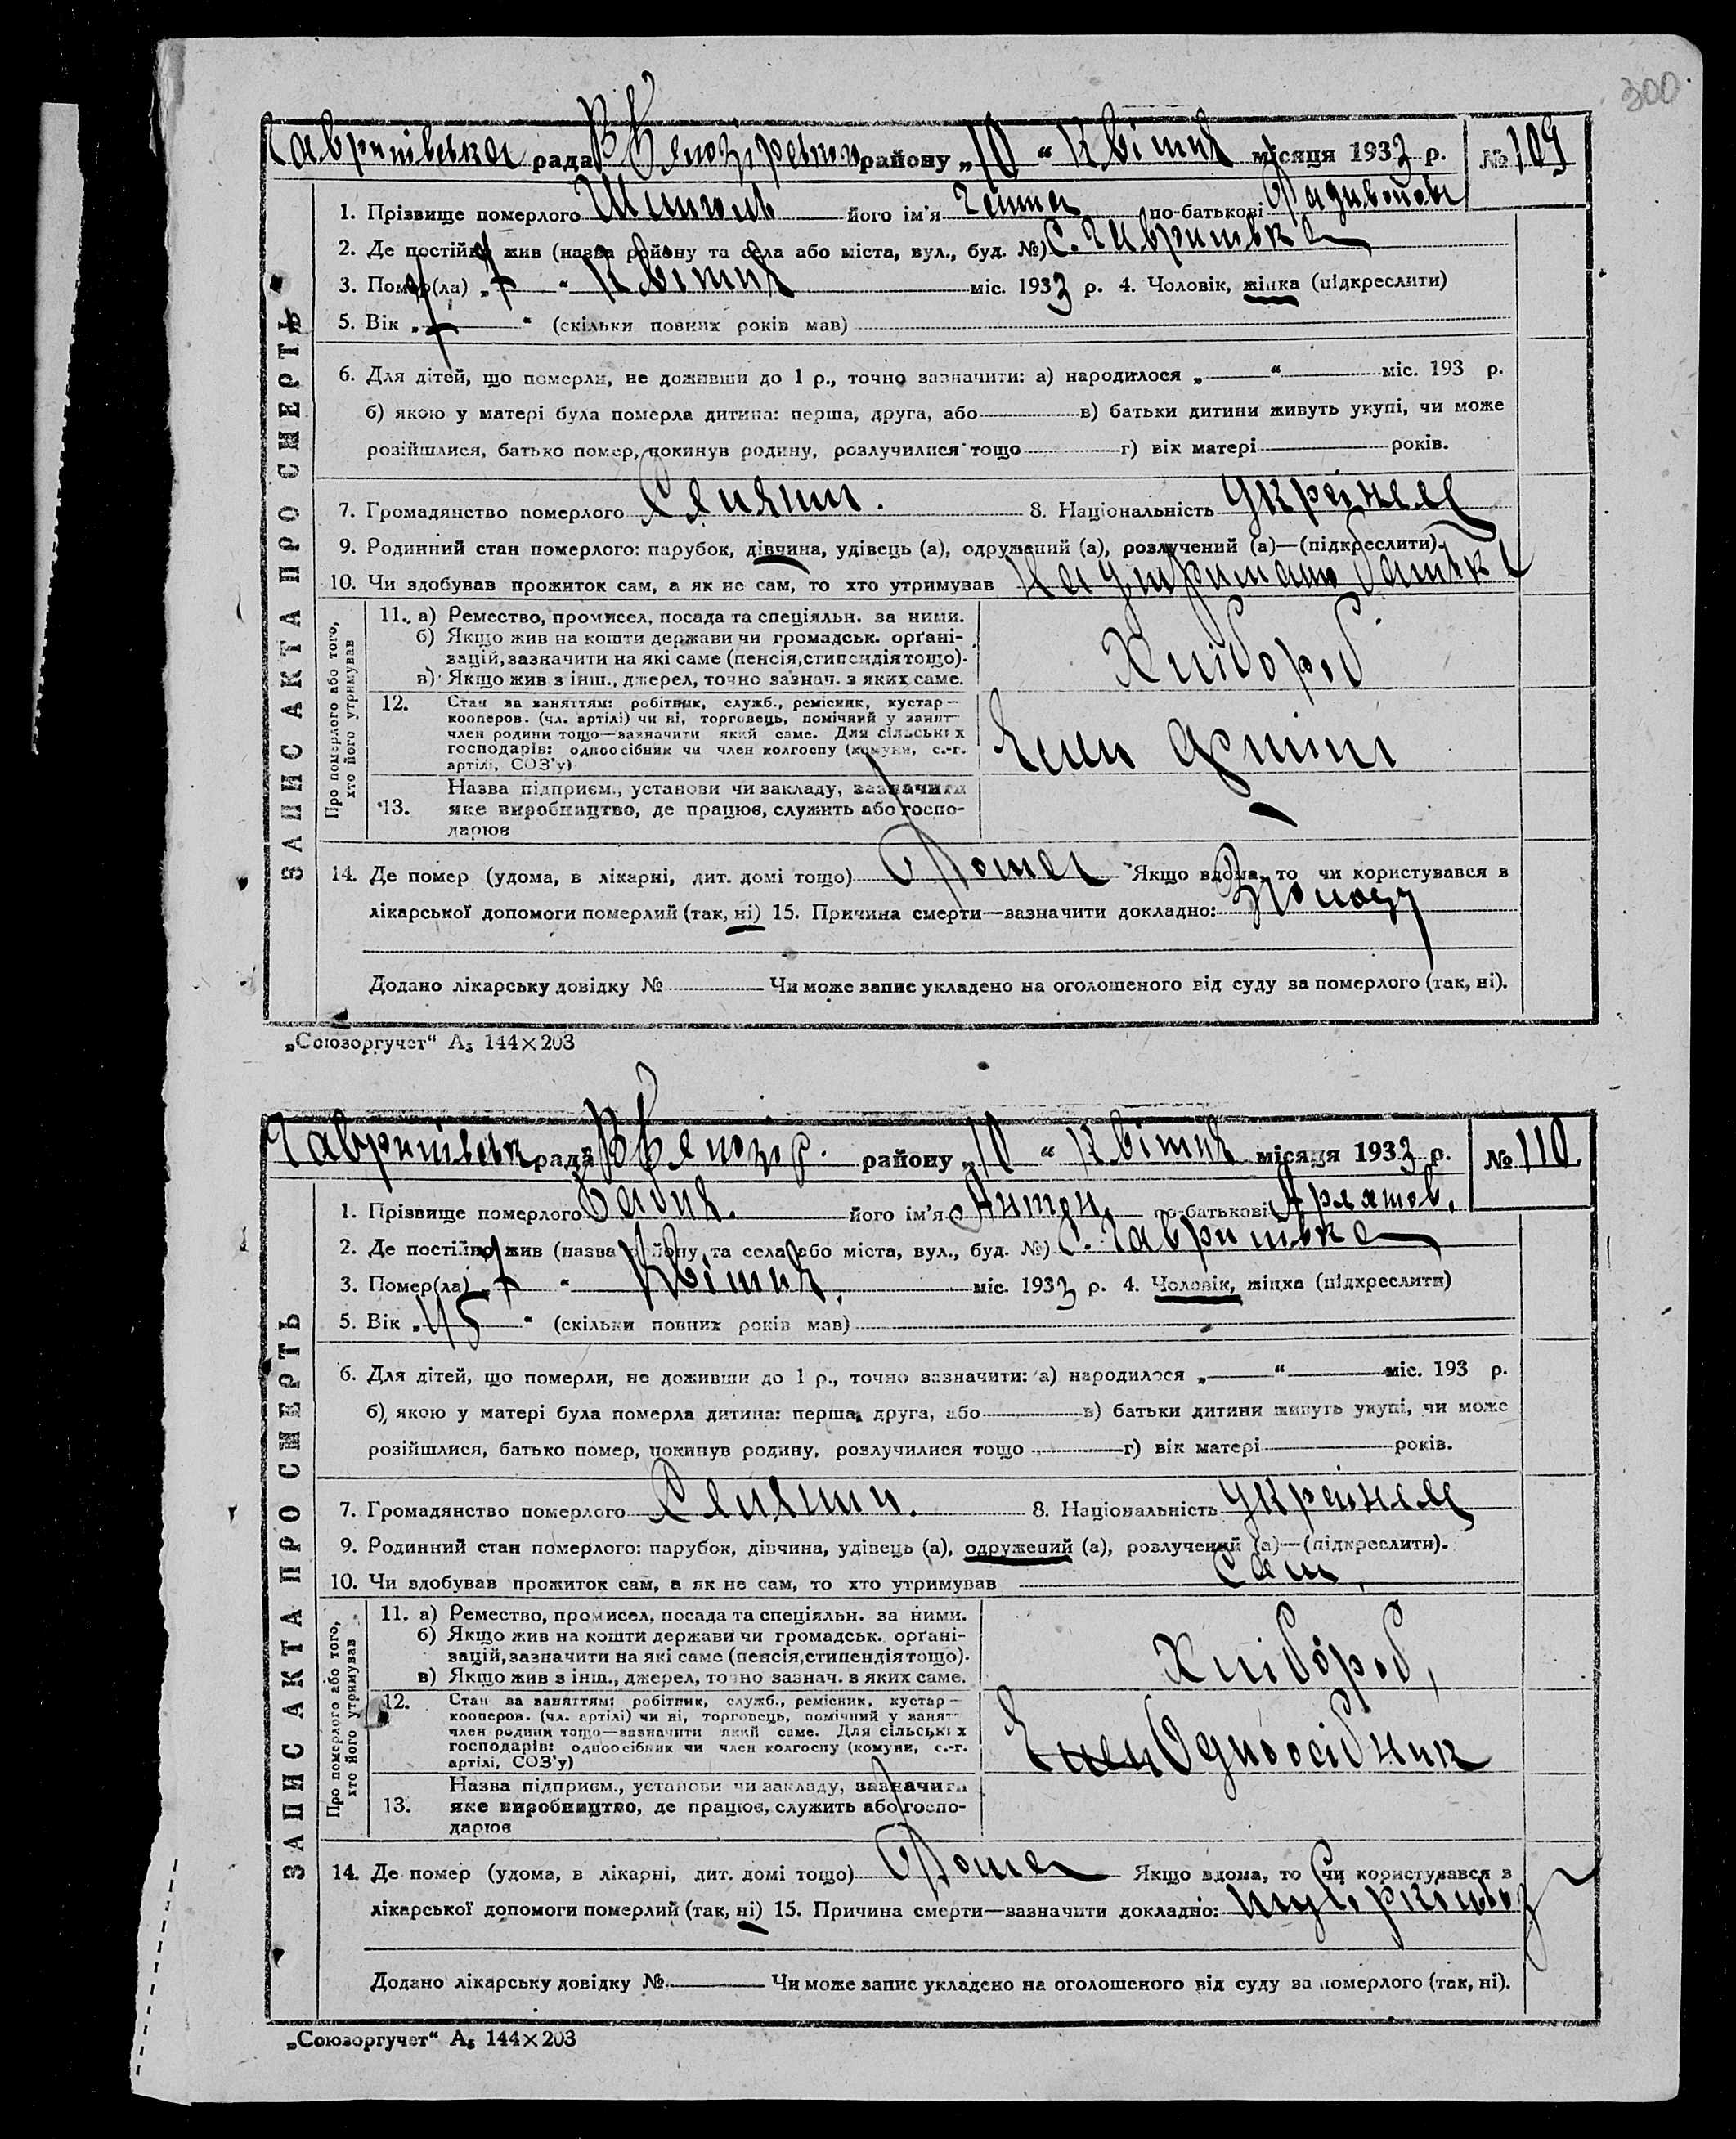 300
рада району „10“ Квітня місяця 1933 р. № 109
ЗАПИС АКТА ПРО СМЕРТЬ
1. Прізвище померлого його ім'я по-батькові
2. Де постійно жив (назва району та села або міста, вул., буд. №) С. Гавришівка
3. Помер(ла) „7“ Квітня міс. 1933 р. 4. Чоловік, жінка (підкреслити)
5. Вік „7“ (скільки повних років мав)
6. Для дітей, що померли, не доживши до 1 р., точно зазначити: а) народилося „ “ міс. 193 р.
б) якою у матері була померла дитина: перша, друга, або в) батьки дитини живуть укупі, чи може
розійшлися, батько помер, покинув родину, розлучилися тощо г) вік матері років.
7. Громадянство померлого Селянин. 8. Національність Українец
9. Родинний стан померлого: парубок, дівчина, удівець (а), одружений (а), розлучений (а)—(підкреслити).
10. Чи здобував прожиток сам, а як не сам, то хто утримував На утриманю батьки
Про померлого або того,
хто його утримував
11. а) Ремество, промисел, посада та спеціяльн. за ними.
б) Якщо жив на кошти держави чи громадськ. орґані-
зацій, зазначити на які саме (пенсія, стипендія тощо).
в) Якщо жив з інш., джерел, точно зазнач. з яких саме.
Хлібороб
12. Стан за заняттям: робітник, служб., ремісник, кустар—
кооперов. (чл. артілі) чи ні, торговець, помічний у занят—
член родини тощо—зазначити який саме. Для сільських
господарів: одноосібник чи член колгоспу (комуни, с.-г.
артілі, СОЗ'у)
Член артілі
13. Назва підприєм., установи чи закладу, зазначити
яке виробництво, де працює, служить або госпо-
дарює
14. Де помер (удома, в лікарні, дит. домі тощо) Дома Якщо вдома, то чи користувався з
лікарської допомоги померлий (так, ні) 15. Причина смерти—зазначити докладно:
Додано лікарську довідку № Чи може запис укладено на оголошеного від суду за померлого (так, ні).
„Союзоргучет“ А₅ 144×203
рада району „10“ Квітня місяця 1933 р. № 110
ЗАПИС АКТА ПРО СМЕРТЬ
1. Прізвище померлого його ім'я Антон по-батькові
2. Де постійно жив (назва району та села або міста, вул., буд. №) С. Гавришівка
3. Помер(ла) „7“ Квітня міс. 1933 р. 4. Чоловік, жінка (підкреслити)
5. Вік „45“ (скільки повних років мав)
6. Для дітей, що померли, не доживши до 1 р., точно зазначити: а) народилося „ “ міс. 193 р.
б) якою у матері була померла дитина: перша, друга, або в) батьки дитини живуть укупі, чи може
розійшлися, батько помер, покинув родину, розлучилися тощо г) вік матері років.
7. Громадянство померлого Селянин. 8. Національність Українец
9. Родинний стан померлого: парубок, дівчина, удівець (а), одружений (а), розлучений (а)—(підкреслити).
10. Чи здобував прожиток сам, а як не сам, то хто утримував Сам,
Про померлого або того,
хто його утримував
11. а) Ремество, промисел, посада та спеціяльн. за ними.
б) Якщо жив на кошти держави чи громадськ. орґані-
зацій, зазначити на які саме (пенсія, стипендія тощо).
в) Якщо жив з інш., джерел, точно зазнач. з яких саме.
Хлібороб,
12. Стан за заняттям: робітник, служб., ремісник, кустар—
кооперов. (чл. артілі) чи ні, торговець, помічний у занят—
член родини тощо—зазначити який саме. Для сільських
господарів: одноосібник чи член колгоспу (комуни, с.-г.
артілі, СОЗ'у)
Член Одноосібник
13. Назва підприєм., установи чи закладу, зазначити
яке виробництво, де працює, служить або госпо-
дарює
14. Де помер (удома, в лікарні, дит. домі тощо) Дома Якщо вдома, то чи користувався з
лікарської допомоги померлий (так, ні) 15. Причина смерти—зазначити докладно: туберкульоз
Додано лікарську довідку № Чи може запис укладено на оголошеного від суду за померлого (так, ні).
„Союзоргучет“ А₅ 144×203